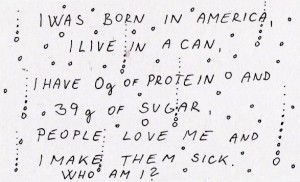 I WAS BORN IN AMERICA,
I LIVE IN A CAN,
I HAVE 0g OF PROTEIN AND
39g OF SUGAR.
PEOPLE LOVE ME AND
I MAKE THEM SICK.
WHO AM I?